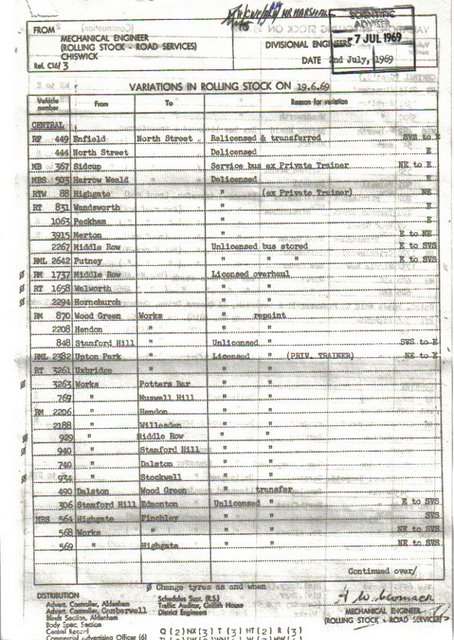 MR MARSHALL
SCIENTIFIC ADVISER
7 JUL 1969
FROM
MECHANICAL ENGINEER
(ROLLING STOCK - ROAD SERVICES)
CHISWICK
DIVISIONAL ENGINEER
Ref. C16/3
DATE 2nd July, 1969
VARIATIONS IN ROLLING STOCK ON 19.6.69
Vehicle number From To Reason for variation
CENTRAL
RF 449 Enfield North Street Relicensed & transferred SVS to E
444 North Street Delicensed E
MB 367 Sidcup Service bus ex Private Trainer NE to E
MBS 503 Harrow Weald Delicensed E
RTW 88 Highgate " (ex Private Trainer) NE
RT 831 Wandsworth " E
1063 Peckham " E
3915 Merton " E to NE
2267 Middle Row Unlicensed bus stored E to SVS
RML 2642 Putney " " " E to SVS
Ø RM 1737 Middle Row Licensed overhaul
Ø RT 1658 Walworth " "
Ø 2294 Hornchurch " "
RM 870 Wood Green Works " repaint
2208 Hendon " " "
848 Stamford Hill " Unlicensed " SVS to E
RML 2382 Upton Park " Licensed " (PRIV. TRAINER) NE to E
RT 3261 Uxbridge " " "
Ø 3263 Works Potters Bar " "
769 " Muswell Hill " "
RM 2206 " Hendon " "
2188 " Willesden " "
Ø 929 " Middle Row " "
Ø 940 " Stamford Hill " "
740 " Dalston " "
Ø 934 " Stockwell " "
490 Dalston Wood Green " transfer
306 Stamford Hill Edmonton Unlicensed " E to SVS
MBS 564 Highgate Finchley " " SVS
568 Works " " " NE to SVS
569 " Highgate " " NE to SVS
Continued over/
Ø Change tyres as and when
DISTRIBUTION
Advert. Controller, Aldenham
Advert. Controller, Camberwell
Blinds Section, Aldenham
Body Spec. Section
Central Record
Commercial Advertising Officer (6)
Schedules Supt. (R.S.)
Traffic Auditor, Griffith House
District Engineers
MECHANICAL ENGINEER
(ROLLING STOCK - ROAD SERVICES)
Q (2) NX (3) T (3) HT (2) R (3)